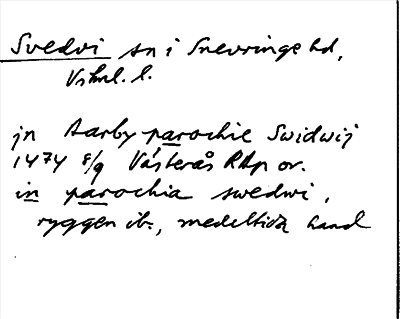 Svedvi sn i Snevringe hd,
Vstml. l.
jn Aarby parochie Swidwij
1474 8/9 Västerås RAp or.
in parochia swedwi,
ryggen ib., medeltida hand